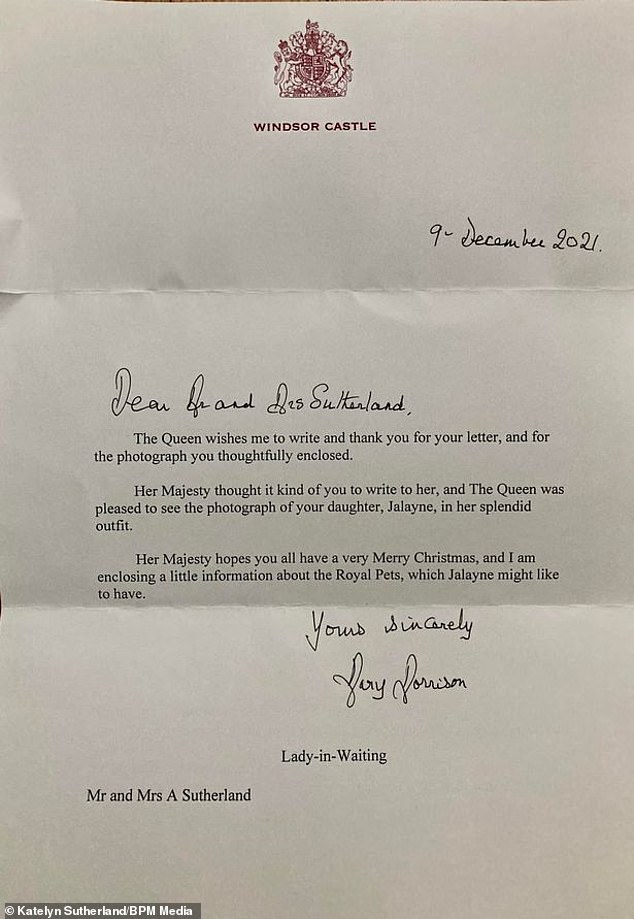 WINDSOR CASTLE
9- December 2021.
Dear Mr and Mrs Sutherland,
The Queen wishes me to write and thank you for your letter, and for
the photograph you thoughtfully enclosed.
Her Majesty thought it kind of you to write to her, and The Queen was
pleased to see the photograph of your daughter, Jalayne, in her splendid
outfit.
Her Majesty hopes you all have a very Merry Christmas, and I am
enclosing a little information about the Royal Pets, which Jalayne might like
to have.
Yours sincerely
Mary Morrison
Lady-in-Waiting
Mr and Mrs A Sutherland
© Katelyn Sutherland/BPM Media